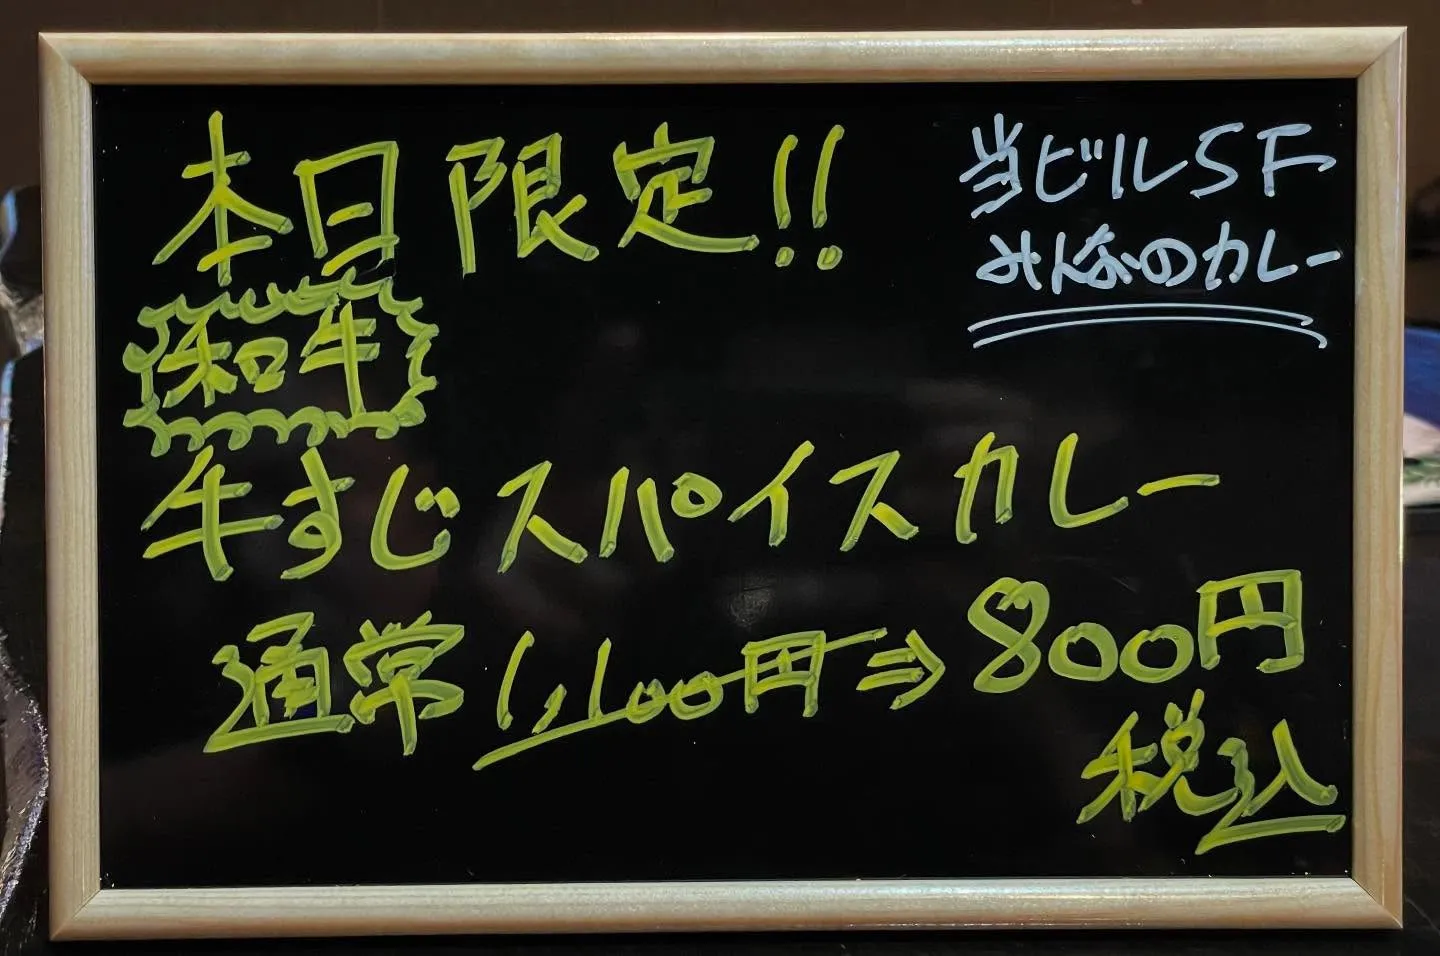 本日限定!!
当ビル5F
みんなのカレー
和牛
牛すじスパイスカレー
通常1,100円⇒800円
税込